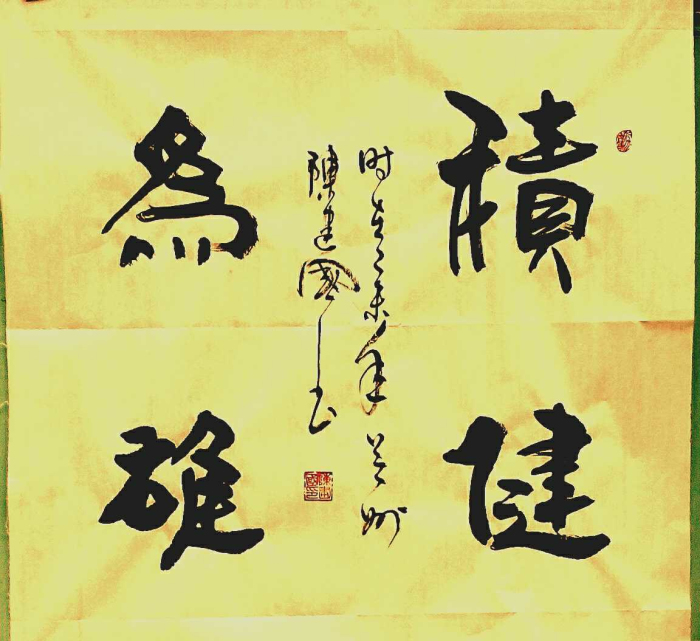 積健
為雄
时在乙未年兰州
陳建國书